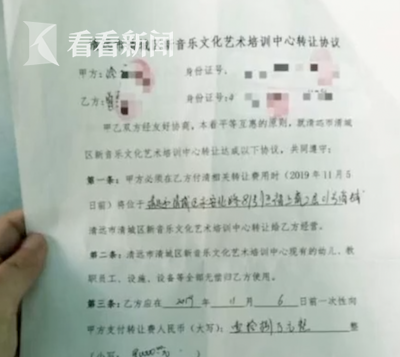 看看新闻
城区新音乐文化艺术培训中心转让协议
甲方: 身份证号:
乙方: 身份证号:
甲乙双方经友好协商,本着平等互惠的原则,就清远市清城
区新音乐文化艺术培训中心转让达成以下协议,共同遵守:
第一条:甲方必须在乙方付清相关转让费用时(2019年11月5
日前)将位于
清远市清城区新音乐文化艺术培训中心转让给乙方经营。
第二条:清远市清城区新音乐文化艺术培训中心现有的幼儿、教
职员工、设施、设备等全部无偿归乙方使用。
第三条:乙方应在 2019 年 11 月 6 日前一次性向
甲方支付转让费人民币(大写): 壹拾捌万元 整